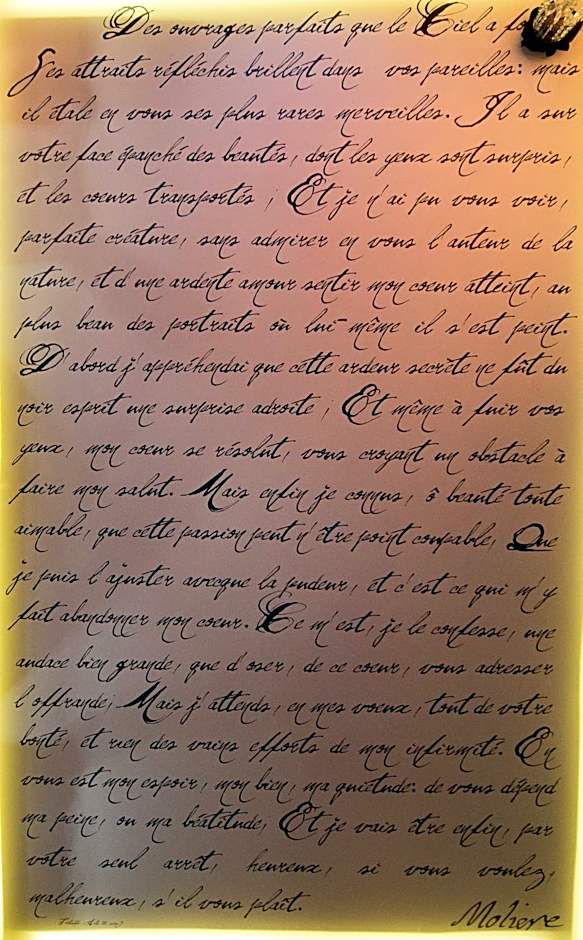 Des ouvrages parfaits que le Ciel a
Ses attraits réfléchis brillent dans vos pareilles: mais
il étale en vous ses plus rares merveilles. Il a sur
votre face épanché des beautés, dont les yeux sont surpris,
et les cœurs transportés ; Et je n'ai pu vous voir,
parfaite créature, sans admirer en vous l'auteur de la
nature, et d'une ardente amour sentir mon cœur atteint, au
plus beau des portraits où lui-même il s'est peint.
D'abord j'appréhendai que cette ardeur secrète ne fût du
noir esprit une surprise adroite ; Et même à fuir vos
yeux, mon cœur se résolut, vous croyant un obstacle à
faire mon salut. Mais enfin je connus, ô beauté toute
aimable, que cette passion peut n'être point coupable, Que
je puis l'ajuster avecque la pudeur, et c'est ce qui m'y
fait abandonner mon cœur. Ce m'est, je le confesse, une
audace bien grande, que d'oser, de ce cœur, vous adresser
l'offrande; Mais j'attends, en mes vœux, tout de votre
bonté, et rien des vains efforts de mon infirmité. En
vous est mon espoir, mon bien, ma quiétude: de vous dépend
ma peine, ou ma béatitude, Et je vais être enfin, par
votre seul arrêt, heureux, si vous voulez,
malheureux, s'il vous plaît.
Molière